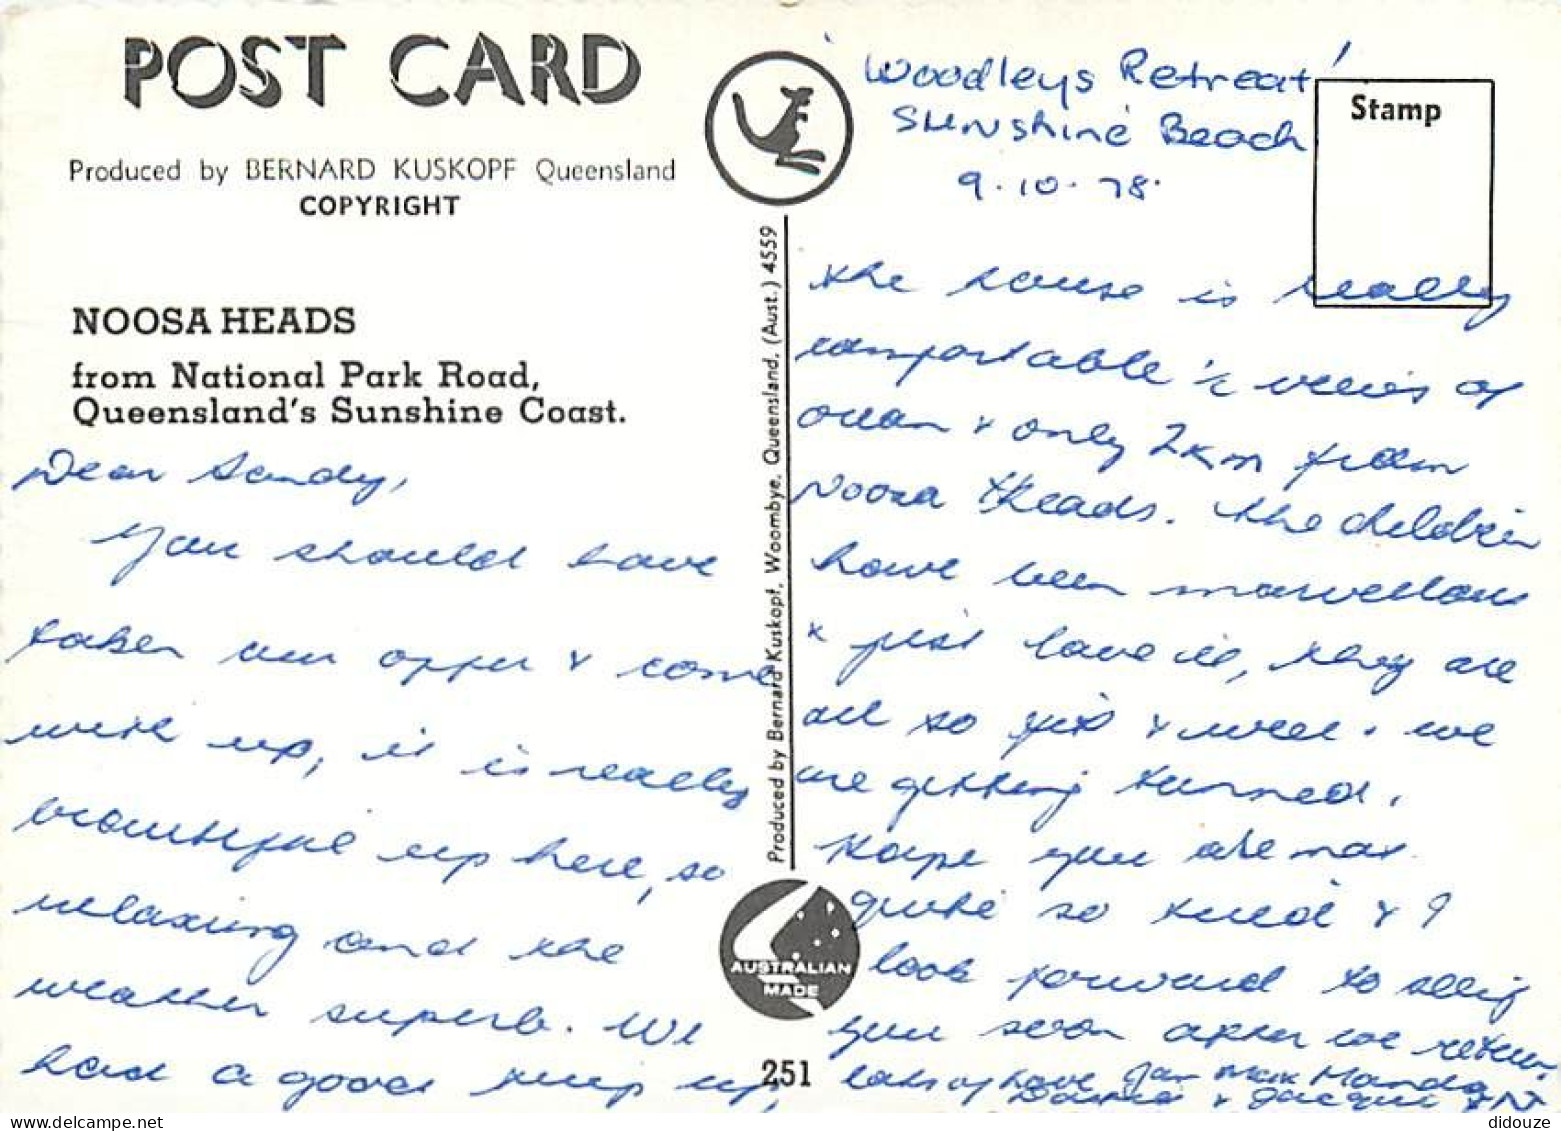 POST CARD
Produced by BERNARD KUSKOPF Queensland
COPYRIGHT
NOOSA HEADS
from National Park Road,
Queensland's Sunshine Coast.
Dear Sandy,
You should have
taken our offer & come
with us, it is really
beautiful up here, so
relaxing and the
weather superb. We
had a good trip up,
Produced by Bernard Kuskopf, Woombye, Queensland. (Aust.) 4559
AUSTRALIAN
MADE
251
'Woodleys Retreat'
Sunshine Beach
9.10.78.
Stamp
The house is really
comfortable 'c views of
ocean & only 2km from
Noosa Heads. The children
have been marvellous
& just love it, they are
all so fit & well. We
are getting tanned.
Hope you are not
quite so tired & I
look forward to seeing
you soon after we return.
Lots of love Jan Mark Manda
& Jacqui
didouze